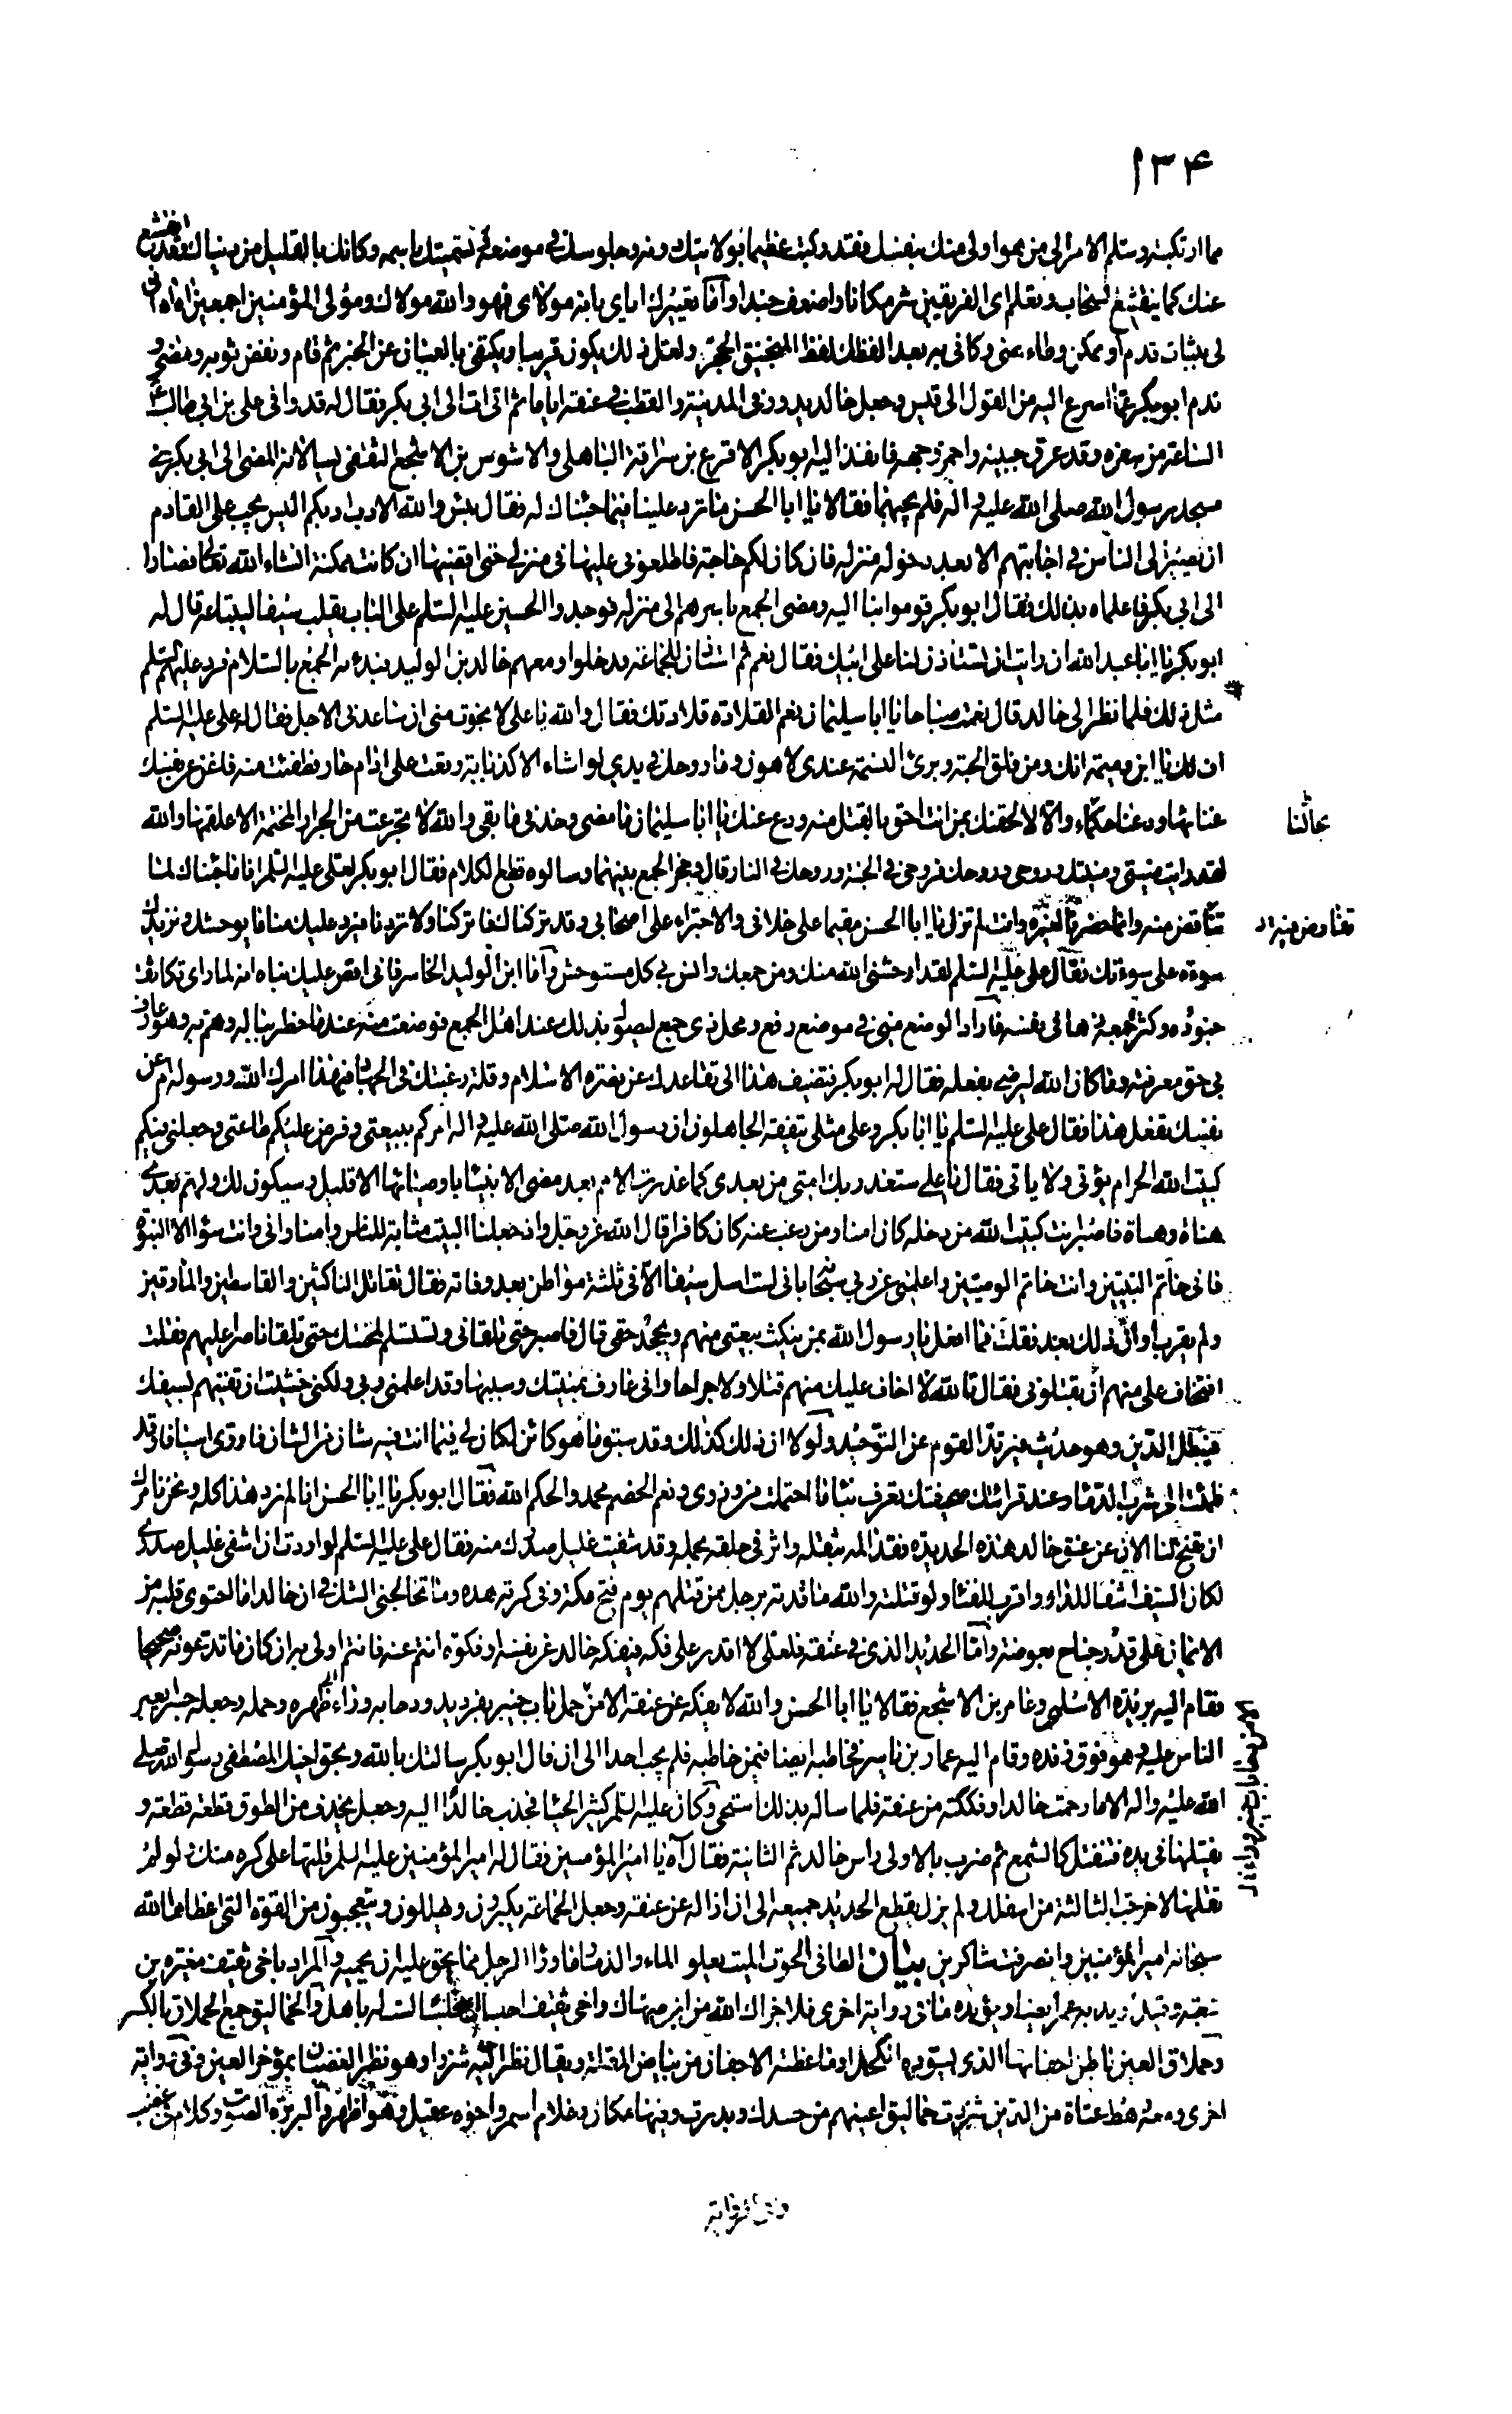 ١٣۴
مما ارتكبته وسلم الامر الى من هو اولى به منك بنفسك فقد ركبت عظيما بولايتك دونه وجلوسك في موضعه وتسميتك باسمه وكانك بالقليل من دنياك وقد انقشع
عنك كما ينقشع السحاب وتعلم اى الفريقين شر مكانا واضعف جندا واما تعييرك اياى بانه مولاى فهو والله مولاك ومولى المؤمنين اجمعين اه اه انى
لى بثبات قدم او تمكن وطاء حتى وكانى به بعد الفظك لفظ المنجنيق الحجر ولعل ذلك يكون قريبا ويكتفى بالعيان عن الخبر ثم قام ونفض ثوبه ومضى و
ندم ابو بكر عما اسرع اليه من القول الى قيس وجعل خالد يدور فى المدينة والقطب في عنقه اياما ثم اتى ات الى ابى بكر فقال له قد وافى على بن ابى طالب
الساعة من سفره وقد عرق جبينه واحمر وجهه فانفذ اليه ابو بكر الاقرع بن سراقة الباهلى والاشوس بن الاشجع الثقفى يسالانه المضى الى ابى بكر فى
مسجد رسول الله صلى الله عليه واله فلم يجبهما فقالا يا ابا الحسن ما ترد علينا فيما جئناك له فقال بئس والله الادب ادبكم اليس يجب على القادم
ان لا يصير الى الناس في اجابتهم الا بعد دخوله منزله فان كان لكم حاجة فاطلعونى عليها فى منزلي حتى اقضيها ان كانت ممكنة انشاء الله تعالى فصارا
الى ابى بكر فاعلماه بذلك فقال ابو بكر قوموا بنا اليه ومضى الجمع باسرهم الى منزله فوجدوا الحسين عليه السلم على الباب يقلب سيفا ليبتاعه قال له
ابو بكر يا ابا عبد الله ان رايت ان تستاذن لنا على ابيك فقال نعم ثم استاذن للجماعة فدخلوا ومعهم خالد بن الوليد فبدء به الجمع بالسلام فرد عليهم السلم
مثل ذلك فلما نظر الى خالد قال نعمت صباحا يا ابا سليمان نعم القلادة قلادتك فقال والله يا على لا نجوت منى ان ساعدنى الاجل فقال له على عليه السلم
اف لك يا ابن دميمة انك ومن فلق الحبة وبرئ النسمة عندى لاهون وما روحك في يدي لو اشاء الا كذبابة وقعت على ادام حار فطفئت منه فاغن عن نفسك
عنائها ودعنا حكماء والا لالحقنك بمن انت احق بالقتل منه ودع عنك يا ابا سليمان ما مضى وخذ فى ما بقى والله لا تجرعت من الجرار المختمة الا علقمها والله
لقد رايت منيتى ومنيتك وروحى وروحك فروحى في الجنة وروحك في النار قال وحجز الجمع بينهما وسالوه قطع الكلام فقال ابو بكر لعلى عليه السلم انا ما جئناك لما
تناقض منه وانما حضرنا لغيره وانت لم تزل يا ابا الحسن مقيما على خلافى والاجتراء على اصحابى وقد تركناك فاتركنا ولا تردنا فيرد عليك منا ما يوحشك ونزيدك
سوءة على سوءتك فقال على عليه السلم لقد اوحشنى الله منك ومن جمعك وانس بي كل مستوحش واما ابن الوليد الخاسر فانى اقص عليك نباه انه لما راى تكاثف
جنوده وكثرة جمعه زها فى نفسه فاراد الوضع منى في موضع رفع ومحل ذى جمع ليصول بذلك عند اهل الجمع فوضعت منه عند ما خطر بباله وهم به وهو عارف
بي حق معرفته وما كان الله ليرضى بفعله فقال له ابو بكر فنضيف هذا الى تقاعدك عن نصرة الاسلام وقلة رغبتك فى الجهاد فبهذا امرك الله ورسوله ام عن
نفسك تفعل هذا فقال على عليه السلم يا ابا بكر وعلى مثلى يتفقه الجاهلون ان رسول الله صلى الله عليه واله امركم ببيعتى وفرض عليكم طاعتى وجعلنى فيكم
كبيت الله الحرام يؤتى ولا ياتى فقال يا على ستغدر بك امتى من بعدى كما غدرت الامم بعد مضى الانبيئا باوصيائها الا قليل وسيكون لك ولهم بعدي
هناة وهناة فاصبر انت كبيت الله من دخله كان امنا ومن رغب عنه كان كافرا قال الله عز وجل واذ جعلنا البيت مثابة للناس وامنا وانى وانت سواء الا النبوة
فانى خاتم النبيين وانت خاتم الوصيين واعلمنى عن ربى سبحانه بانى لست اسل سيفا الا فى ثلثة مواطن بعد وفاته فقال تقاتل الناكثين والقاسطين والمارقين
ولم يقرب اوان ذلك بعد فقلت فما افعل يا رسول الله بمن ينكث بيعتى منهم ويجحد حقى قال فاصبر حتى تلقانى وتستسلم لمحنتك حتى تلقا ناصرا عليهم فقلت
افتخاف على منهم ان يقتلونى فقال تالله لا اخاف عليك منهم قتلا ولا جراحا وانى عارف بمنيتك وسببها وقد اعلمنى ربى ولكنى خشيت ان تفنيهم بسيفك
فيبطل الدين وهو حديث فيرتد القوم عن التوحيد ولولا ان ذلك كذلك وقد سبق ما هو كائن لكان لي فيما انت فيه شان من الشان ولرويت اسيافا وقد
ظمئت الى شرب الدماء وعند قرائتك صحيفتك تعرف نبئا ما احتملت من وزرى ونعم الخصم محمد والحكم الله فقال ابو بكر يا ابا الحسن انا لم نرد هذا كله ونحن نامرك
ان تفتح لنا الان عن عنق خالد هذه الحديدة فقد المه بثقله واثر فى حلقه بحمله وقد شفيت غليل صدرك منه فقال على عليه السلم لو اردت ان اشفى غليل صدري
لكان السيف اشفا للداء واقرب للفناء ولو قتلته والله ما قدته برجل ممن قتلهم يوم فتح مكة وفى كرته هذه وما تخالجنى الشك في ان خالدا ما احتوى قلبه من
الايمان على قدر جناح بعوضة واما الحديد الذى في عنقه فلعلى لا اقدر على فكه فيفكه خالد عن نفسه او فكوه انتم عنه فانتم اولى به ان كان ما تدعونه صحيحا
فقام اليه بريدة الاسلمي وعامر بن الاشجع فقالا يا ابا الحسن والله لا يفكه عن عنقه الا من حمل باب خيبر بفرد يد ودحا به وراء ظهره وحمله وجعله جسرا يعبر
الناس عليه وهو فوق زنده وقام اليه عمار بن ياسر فخاطبه ايضا فيمن خاطبه فلم يجب احدا الى ان قال ابو بكر سالتك بالله وبحق اخيك المصطفى رسول الله صلى
الله عليه واله الا ما رحمت خالدا وفككته من عنقه فلما ساله بذلك استحيى وكان عليه السلم كثير الحيا فجذب خالدا اليه وجعل يجذف من الطوق قطعة قطعة و
يفتلها فى يده فتنفتل كالشمع ثم ضرب بالاولى راس خالد ثم الثانية فقال آه يا امير المؤمنين فقال له امير المؤمنين عليه السلم قلتها على كره منك ولو لم
تقلها لاخرجت الثالثة من اسفلك ولم يزل يقطع الحديد جميعه الى ان ازاله عن عنقه وجعل الجماعة يكبرون ويهللون ويتعجبون من القوة التى اعطاها الله
سبحانه امير المؤمنين وانصرفت شاكرين بيان الطافى الحوت الميت يعلو الماء والذمار ما وراء الرجل مما يحق عليه ان يحميه والمراد باخى ثقيف مغيرة بن
وحملاق العين باطن اجفانها الذى يسوده الكحل او ما غطته الاجفان من بياض المقلة ويقال نظر اليه شزرا وهو نظر الغضبان بمؤخر العين وفى رواية